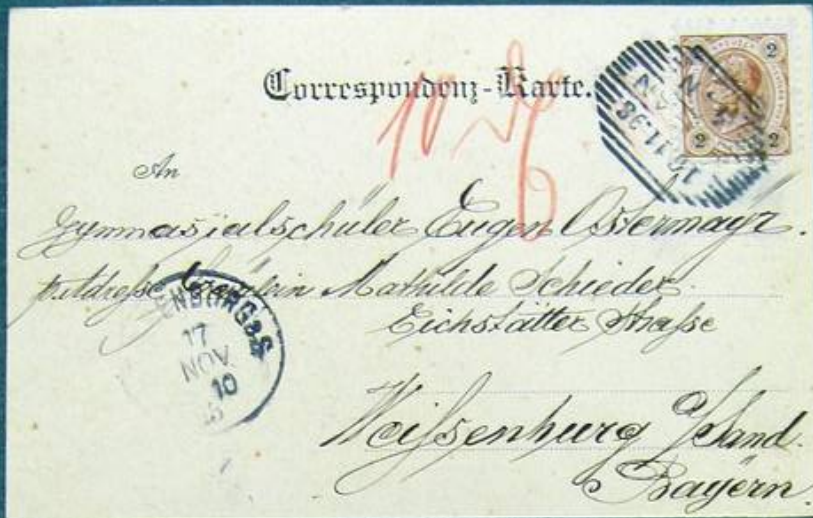 Correspondenz-Karte.
10
An
Gymnasialschüler Eugen Ostermayr.
p. Adresse Fräulein Mathilde Schieder.
Eichstätter Straße
Weißenburg a/Sand.
Bayern.
2
2 2
16.11.98
ENBURG a. S
17
NOV
10